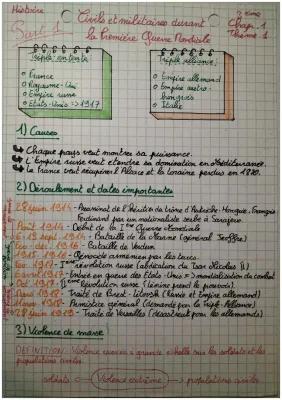 Histoire
3 ème
Chap. 1
Thème 1
Part 1
Civils et militaires durant
la Première Guerre Mondiale
Triple-entente
France
Royaume-Uni
Empire russe
Etats-Unis => 1917
Triple alliance
Empire allemand
Empire austro-
hongrois
Italie
1) Causes
Chaque pays veut montrer sa puissance.
L'Empire russe veut étendre sa domination en Méditerranée.
La France veut récupérer l'Alsace et la Loraine perdus en 1870.
2) Déroulement et dates importantes
28 juin 1914 - Assassinat de l'héritier du trône d'Autriche-Hongrie, François
Ferdinand par un nationaliste serbe à Sarajevo
Août 1914 - Début de la 1ère Guerre Mondiale
Bataille de la Marne (général Joffre)
1916 - Bataille de Verdun
1915 - Génocide arménien par les turcs
1917 - 1ère révolution russe (abdication du Tsar Nicolas II)
avril 1917 - Entrée en guerre des Etats-Unis
Oct. 1917 - révolution russe (Lénine prend le pouvoir)
Mars 1918 - Traité de Brest-Litovsk (Russie et Empire allemand)
1918 - Armistice général
28 juin 1919 - Traité de Versailles
3) Violence de masse
DEFINITION: Violence exercée à grande échelle sur les soldats et les
populations civiles.
soldats
Violence extrême
populations civiles